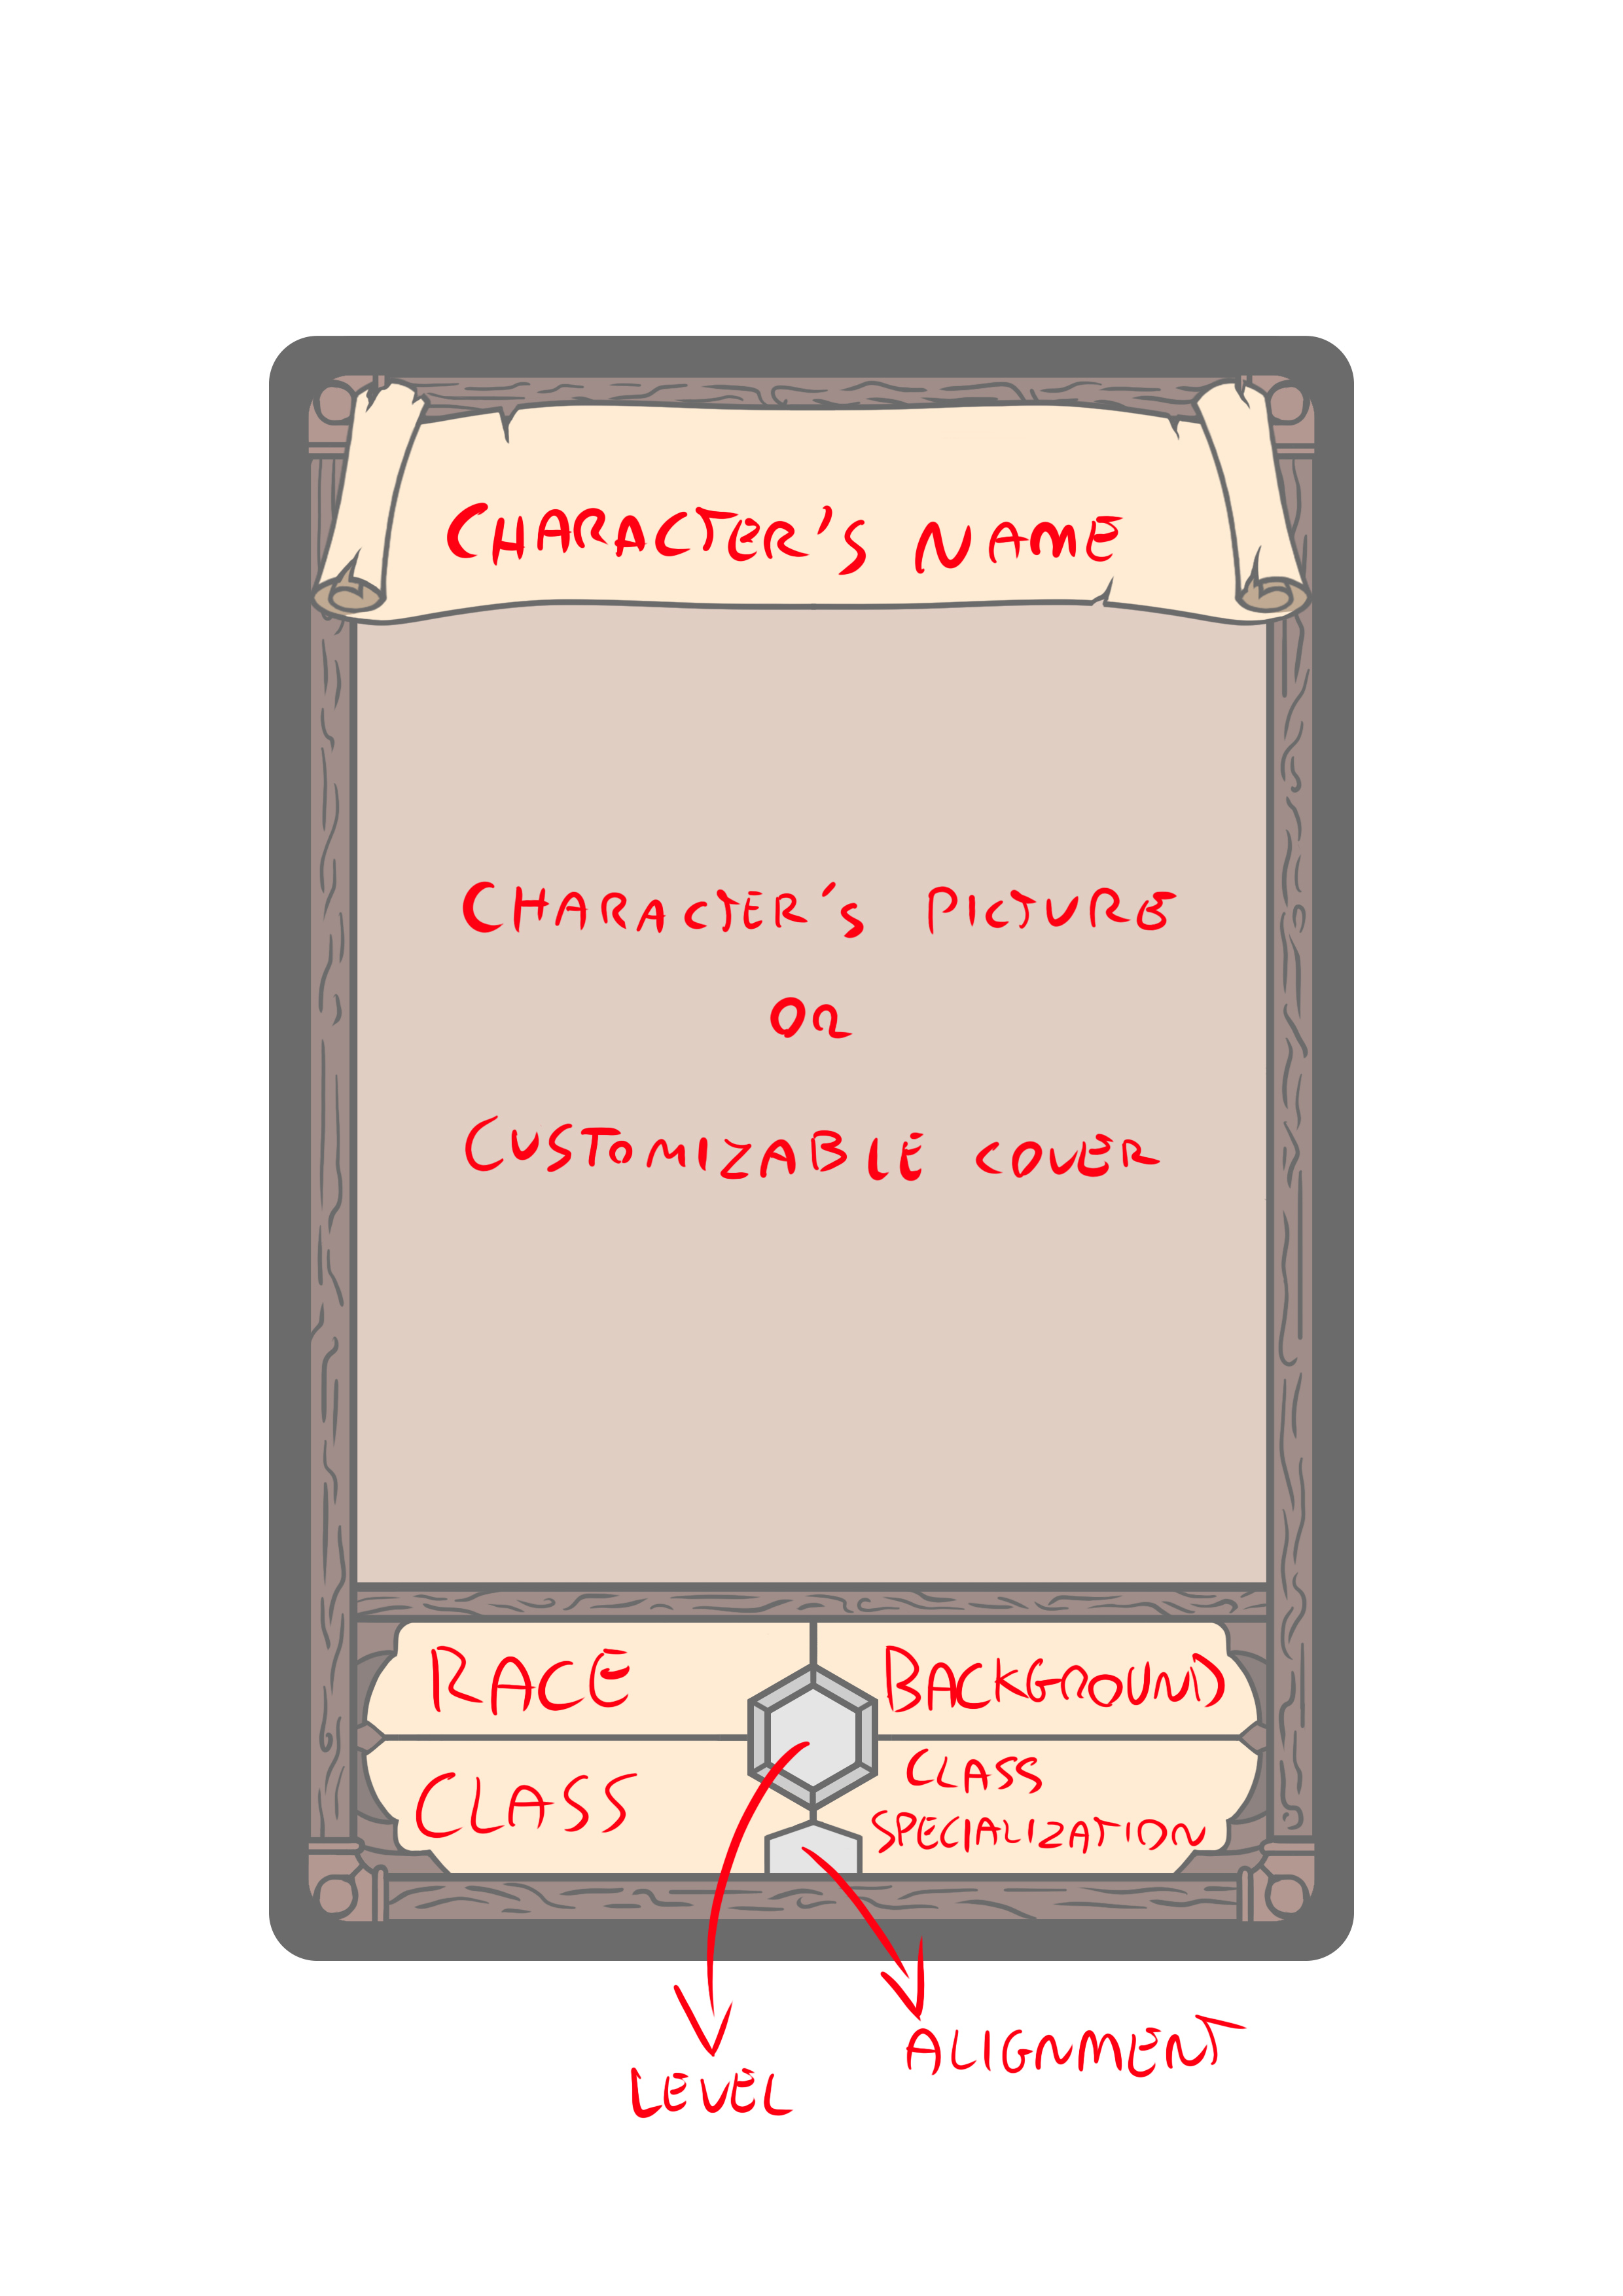 CHARACTER'S NAME
CHARACTER'S PICTURE
OR
CUSTOMIZABLE COVER
RACE
BACKGROUND
CLASS
CLASS
SPECIALIZATION
LEVEL
ALIGNMENT